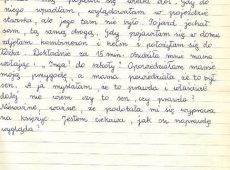 wpadłam, wyglądałam w
słunka, ale jego tam nie było. Pojazd jechał
sam, tą samą drogą. Gdy pojawiłam się w domu
zdjęłam kombinezon i hełm i położyłam się do
łóżka. Dokładnie za 15 min. obudziła mnie mama
wołając: , do szkoły! Opowiedziałam mamie
moją przygodę, a mama powiedziała że to był
sen. A ja myślałam, że to prawda i właściwie
dalej nie wiem czy to sen, czy prawda?
Nieważne, ważne, że podobała mi się wyprawa
na księżyc. Jestem ciekawa, jak on naprawdę
wygląda?